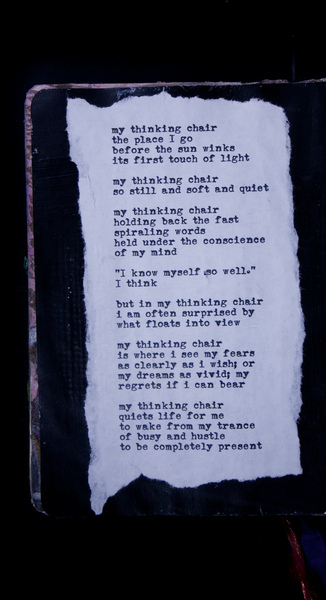 my thinking chair
the place I go
before the sun winks
its first touch of light
my thinking chair
so still and soft and quiet
my thinking chair
holding back the fast
spiraling words
held under the conscience
of my mind
"I know myself so well."
I think
but in my thinking chair
i am often surprised by
what floats into view
my thinking chair
is where i see my fears
as clearly as i wish; or
my dreams as vivid; my
regrets if i can bear
my thinking chair
quiets life for me
to wake from my trance
of busy and hustle
to be completely present